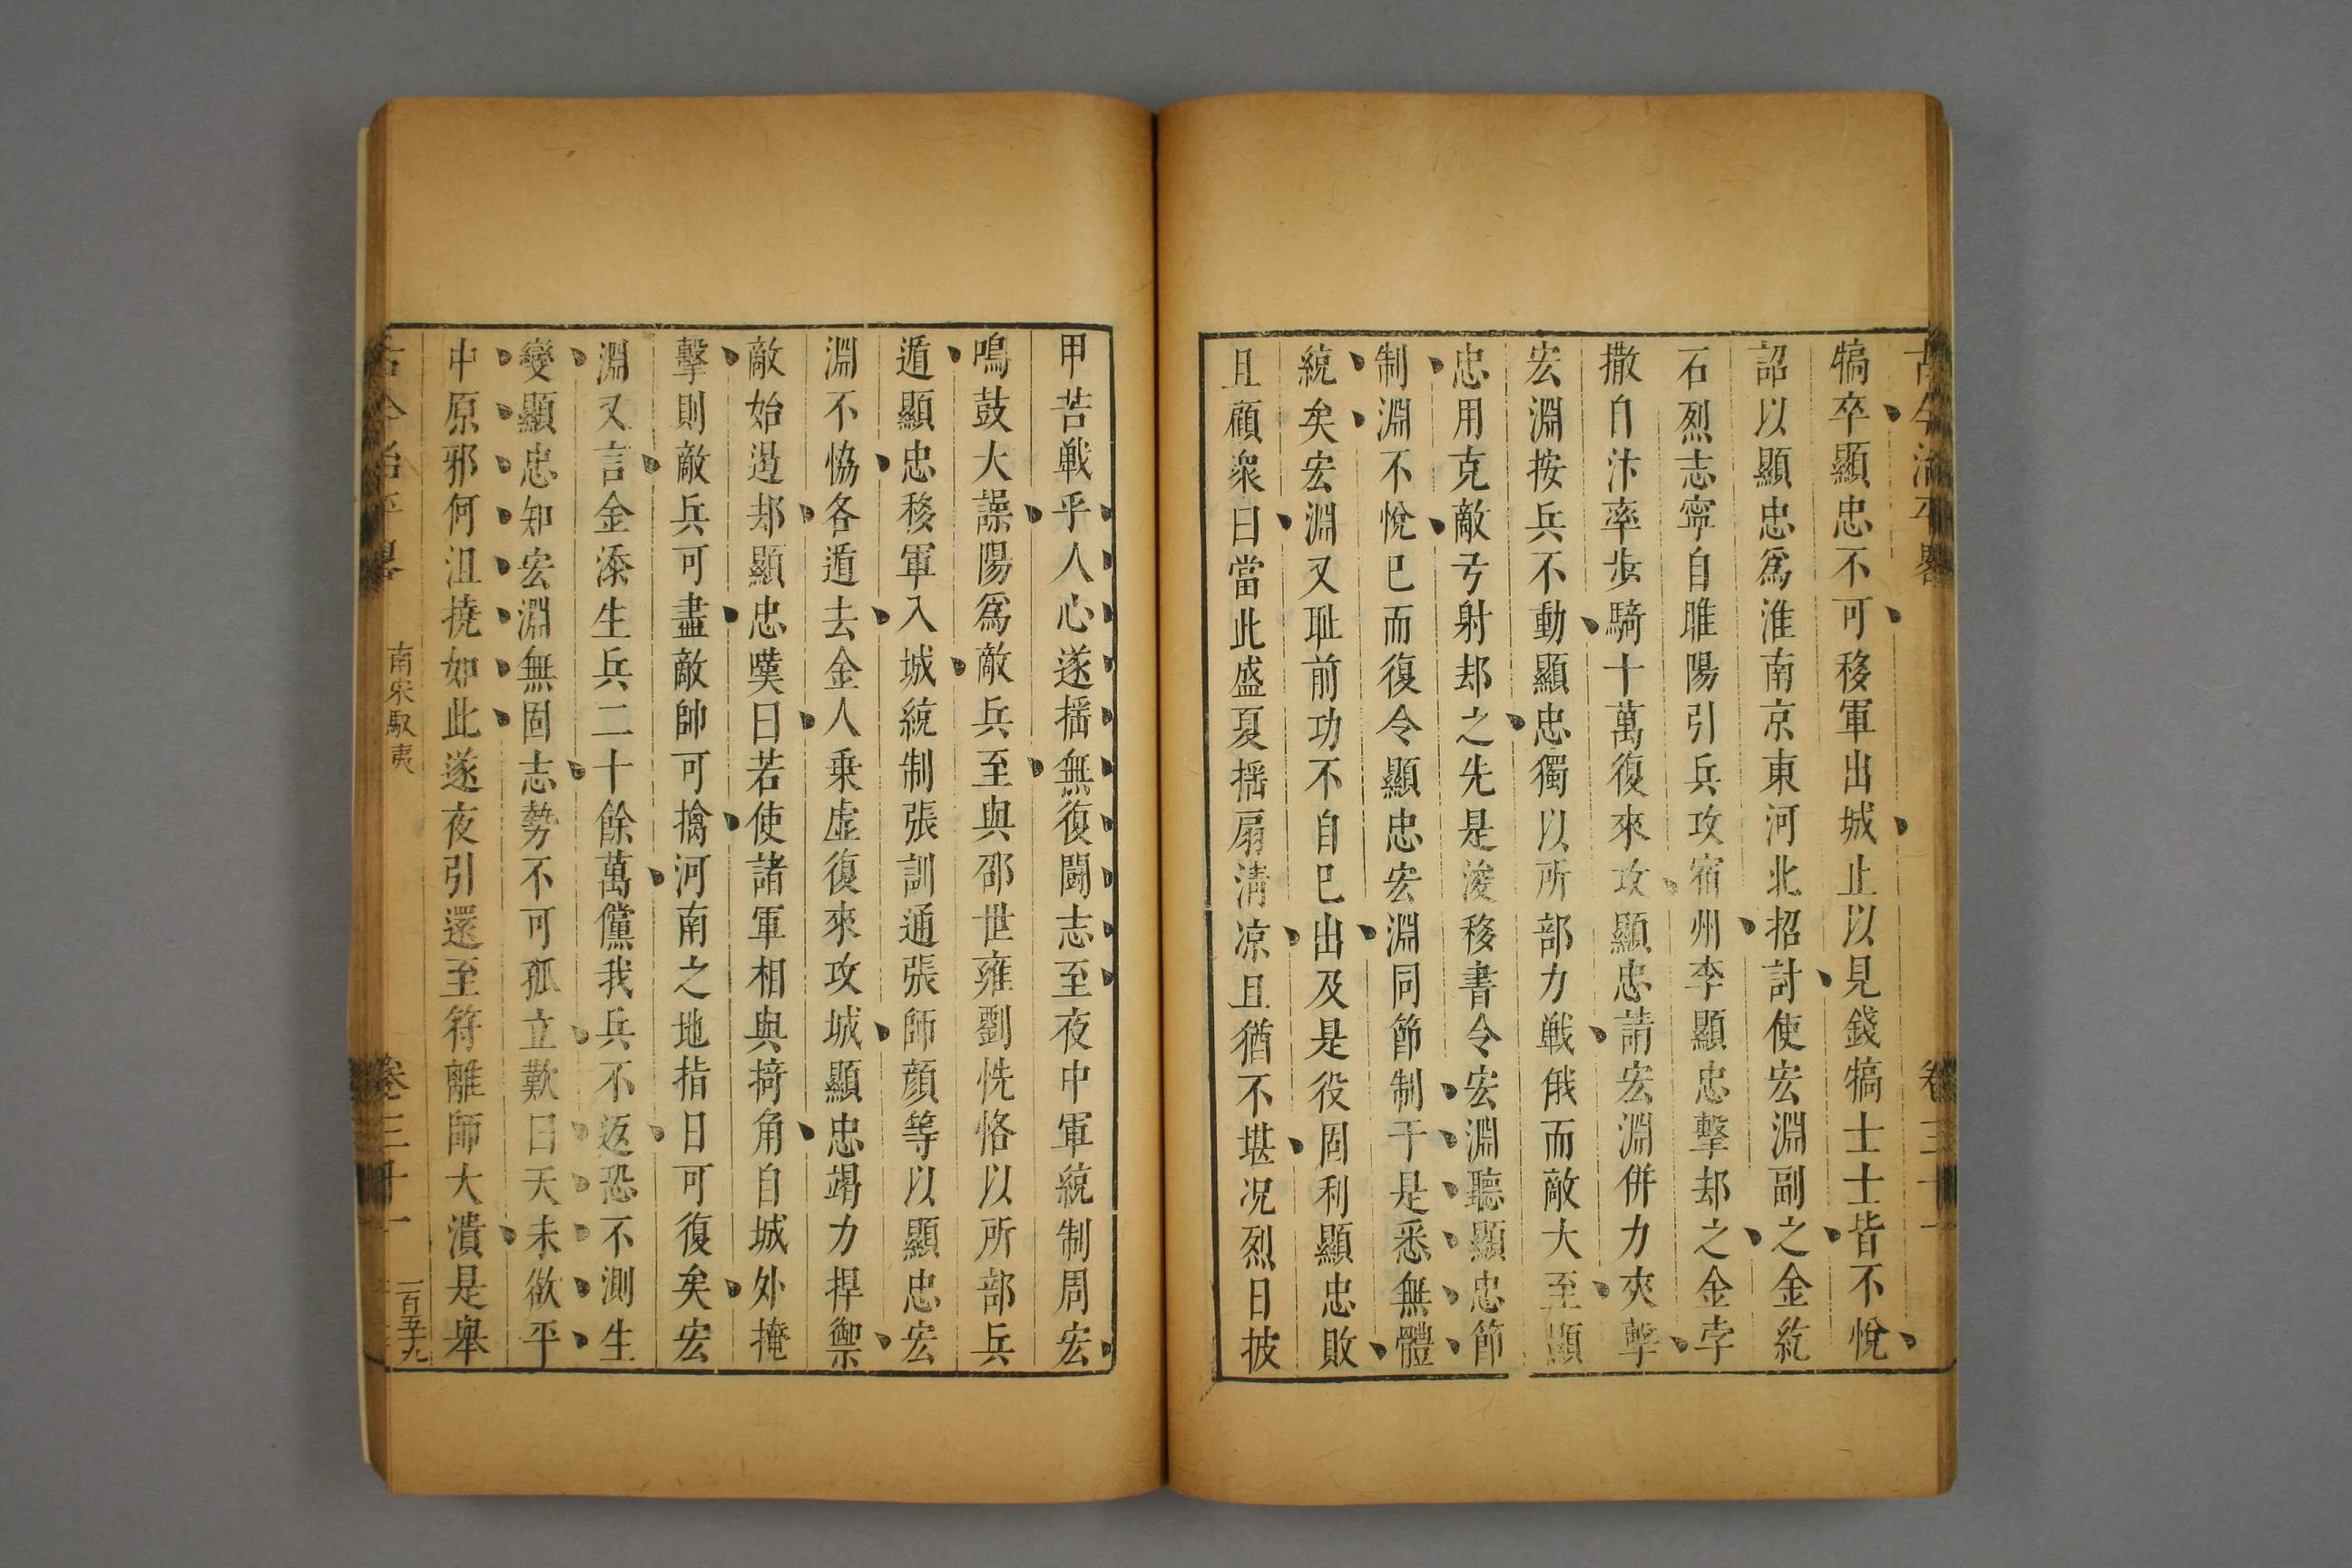 古今治平畧 卷三十一
犒卒顯忠不可移軍出城止以見錢犒士士皆不悅
詔以顯忠爲淮南京東河北招討使宏淵副之金紇
石烈志寧自睢陽引兵攻宿州李顯忠擊却之金孛
撒自汴率步騎十萬復來攻顯忠請宏淵併力夾擊
宏淵按兵不動顯忠獨以所部力戰俄而敵大至顯
忠用克敵弓射却之先是浚移書令宏淵聽顯忠節
制淵不悅巳而復令顯忠宏淵同節制于是悉無體
統矣宏淵又耻前功不自巳出及是役固利顯忠敗
且顧衆曰當此盛夏揺扇淸凉且猶不堪况烈日披
甲苦戰乎人心遂揺無復鬪志至夜中軍統制周宏
鳴鼓大譟陽爲敵兵至與邵世雍劉恍恪以所部兵
遁顯忠移軍入城統制張訓通張師顔等以顯忠宏
淵不恊各遁去金人乗虛復來攻城顯忠竭力捍禦
敵始退却顯忠嘆曰若使諸軍相與掎角自城外掩
擊則敵兵可盡敵帥可擒河南之地指日可復矣宏
淵又言金添生兵二十餘萬儻我兵不返恐不測生
變顯忠知宏淵無固志勢不可孤立歎曰天未欲平
中原邪何沮撓如此遂夜引還至符離師大潰是舉
古今治平畧 南宋馭夷 卷三十一 一百五十九